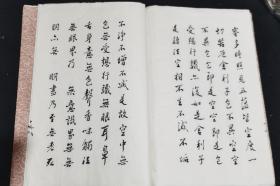 蜜多時照見五蘊皆空度一
切苦厄舍利子色不異空空
不異色色即是空空即是色
受想行識亦復如是舍利子
是諸法空相不生不滅不垢
不淨不增不減是故空中無
色無受想行識無眼耳鼻
舌身意無色聲香味觸法
無眼界乃至無意識界無無
明亦無無明盡乃至無老死